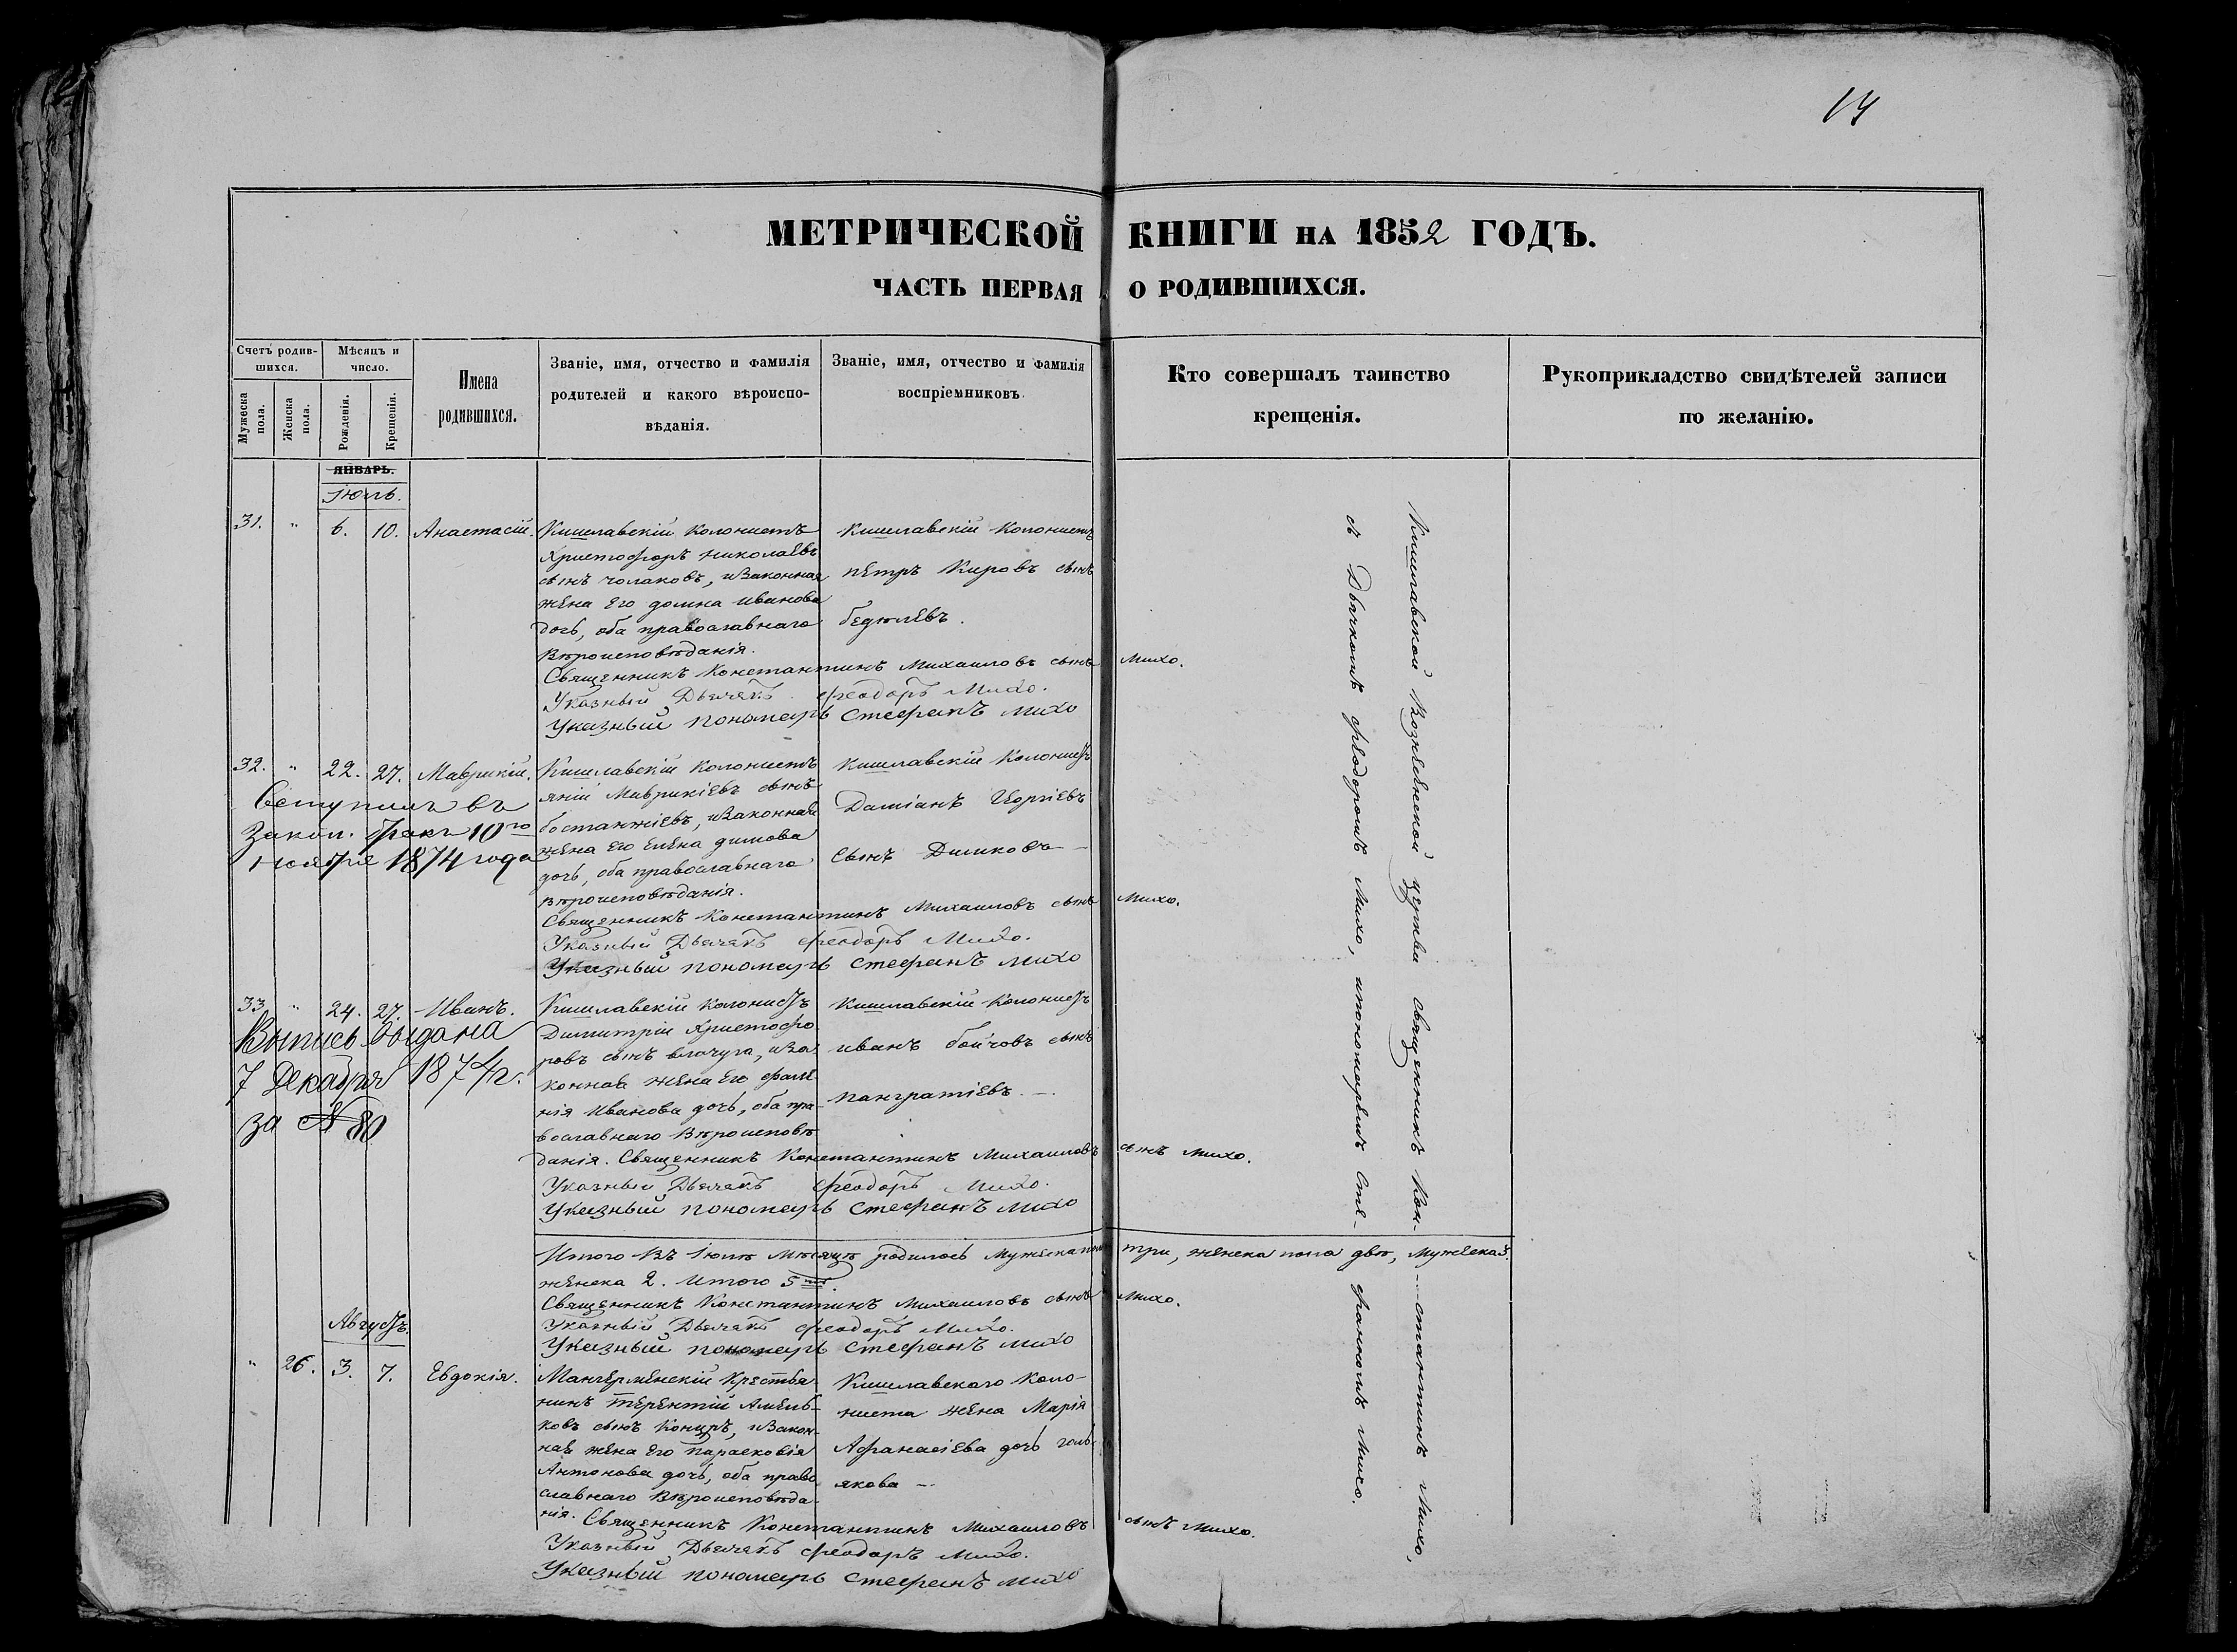 14
МЕТРИЧЕСКОЙ КНИГИ НА 1852 ГОДЪ.
ЧАСТЬ ПЕРВАЯ О РОДИВШИХСЯ.
Счетъ родив-
шихся.
Мужеска пола.
Женска пола.
Мѣсяцъ и
число.
Рожденія.
Крещенія.
Имена
родившихся.
Званіе, имя, отчество и фамилія
родителей и какого вѣроиспо-
вѣданія.
Званіе, имя, отчество и фамилія
воспріемниковъ.
Кто совершалъ таинство
крещенія.
Рукоприкладство свидѣтелей записи
по желанію.
ЯНВАРЬ.
Іюль.
31. " 6. 10. Анастасій.
Кишлавскій Колонистъ
Христофоръ Николаевъ
сынъ Чолаковъ, и Законная
жена Его Домна Иванова
дочь, оба православнаго
Вѣроисповѣданія.
Кишлавскій Колонистъ
Петръ Кировъ сынъ
Бедюлевъ.
Священникъ Константинъ Михаиловъ сынъ Михо.
Указный Дьячекъ Феодоръ Михо.
Указный пономарь Стефанъ Михо
32. " 22. 27. Маврикій.
Вступилъ въ
Закон. бракъ 10го
ноября 1874 года
Кишлавскій Колонистъ
Яній Маврикіевъ сынъ
Бостанжіевъ, и Законная
жена Его Елена Димова
дочь, оба православнаго
вѣроисповѣданія.
Кишлавскій Колонистъ
Даміанъ Георгіевъ
сынъ Димковъ
Священникъ Константинъ Михаиловъ сынъ Михо.
Указный Дьячекъ Феодоръ Михо.
Указный пономарь Стефанъ Михо
33. " 24. 27. Иванъ.
Выпись выдана
7 Декабря 1874 г.
за № 80
Кишлавскій Колонистъ
Димитрій Христофо-
ровъ сынъ Влачуга, и За-
конная жена Его Фате-
нія Иванова дочь, оба пра-
вославнаго Вѣроисповѣ
данія.
Кишлавскій Колонистъ
Иванъ Бойчовъ сынъ
Пангратіевъ.
Священникъ Константинъ Михаиловъ сынъ Михо.
Указный Дьячекъ Феодоръ Михо.
Указный пономарь Стефанъ Михо
Итого Въ Іюлѣ Мѣсяцѣ родилось Мужска пола три, женска пола двѣ, Мужеска 3.
женска 2. Итого 5
Священникъ Константинъ Михаиловъ сынъ Михо.
Указный Дьячекъ Феодоръ Михо.
Указный пономарь Стефанъ Михо
Августъ.
" 26. 3. 7. Евдокія.
Крестья-
нинъ Терентій Амель-
ковъ сынъ и Закон-
ная жена Его Параскевія
Антонова дочь, оба право-
славнаго Вѣроисповѣда-
нія.
Кишлавскаго Коло-
ниста жена Марія
Афанасіева дочь
якова
Священникъ Константинъ Михаиловъ сынъ Михо.
Указный Дьячекъ Феодоръ Михо.
Указный пономарь Стефанъ Михо
Кишлавской Вознесенской церкви Священникъ Кон-
стантинъ Михо,
съ Дьячкомъ Феодоромъ Михо, и пономаремъ Сте-
фаномъ Михо.